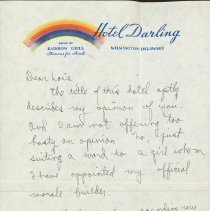 Hotel Darling
HOME OF
RAINBOW GRILL
Famous for Food
WILMINGTON • DELAWARE
Dear Lois
the title of this hotel aptly
describes my opinion of you
and I am not offering too
hasty an opinion no, I just
writing a word to a girl whom
I have appointed my official
morale builder.
my